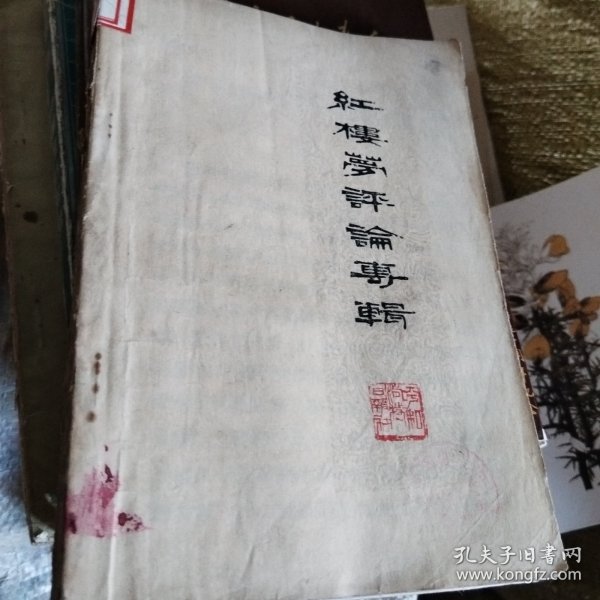 紅樓夢評論專輯
孔夫子旧书网
www.kongfz.com